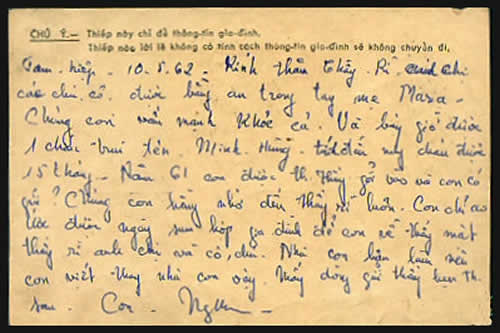 CHÚ Ý.— Thiếp này chỉ để thông-tin gia-đình.
Thiếp nào lời lẽ không có tính cách thông-tin gia-đình sẽ không chuyển đi.
Tam-hiệp - 10.8.62 - Kính thăm thầy
các chị, cô được bằng an trong tay mẹ Maria -
Chúng con vẫn mạnh khỏe cả. Và bây giờ được
1 cháu trai tên Minh Hùng - nay cháu được
15 tháng - Năm 61 con được và con có
gửi? Chúng con hằng nhớ đến thầy luôn. Con chỉ ao
ước được ngày sum họp gia đình để con về thấy mặt
thầy anh chị và cô, chú. Nhà con bận lắm nên
con viết thay nhà con vậy. Mấy dòng gửi thầy
sau. Con